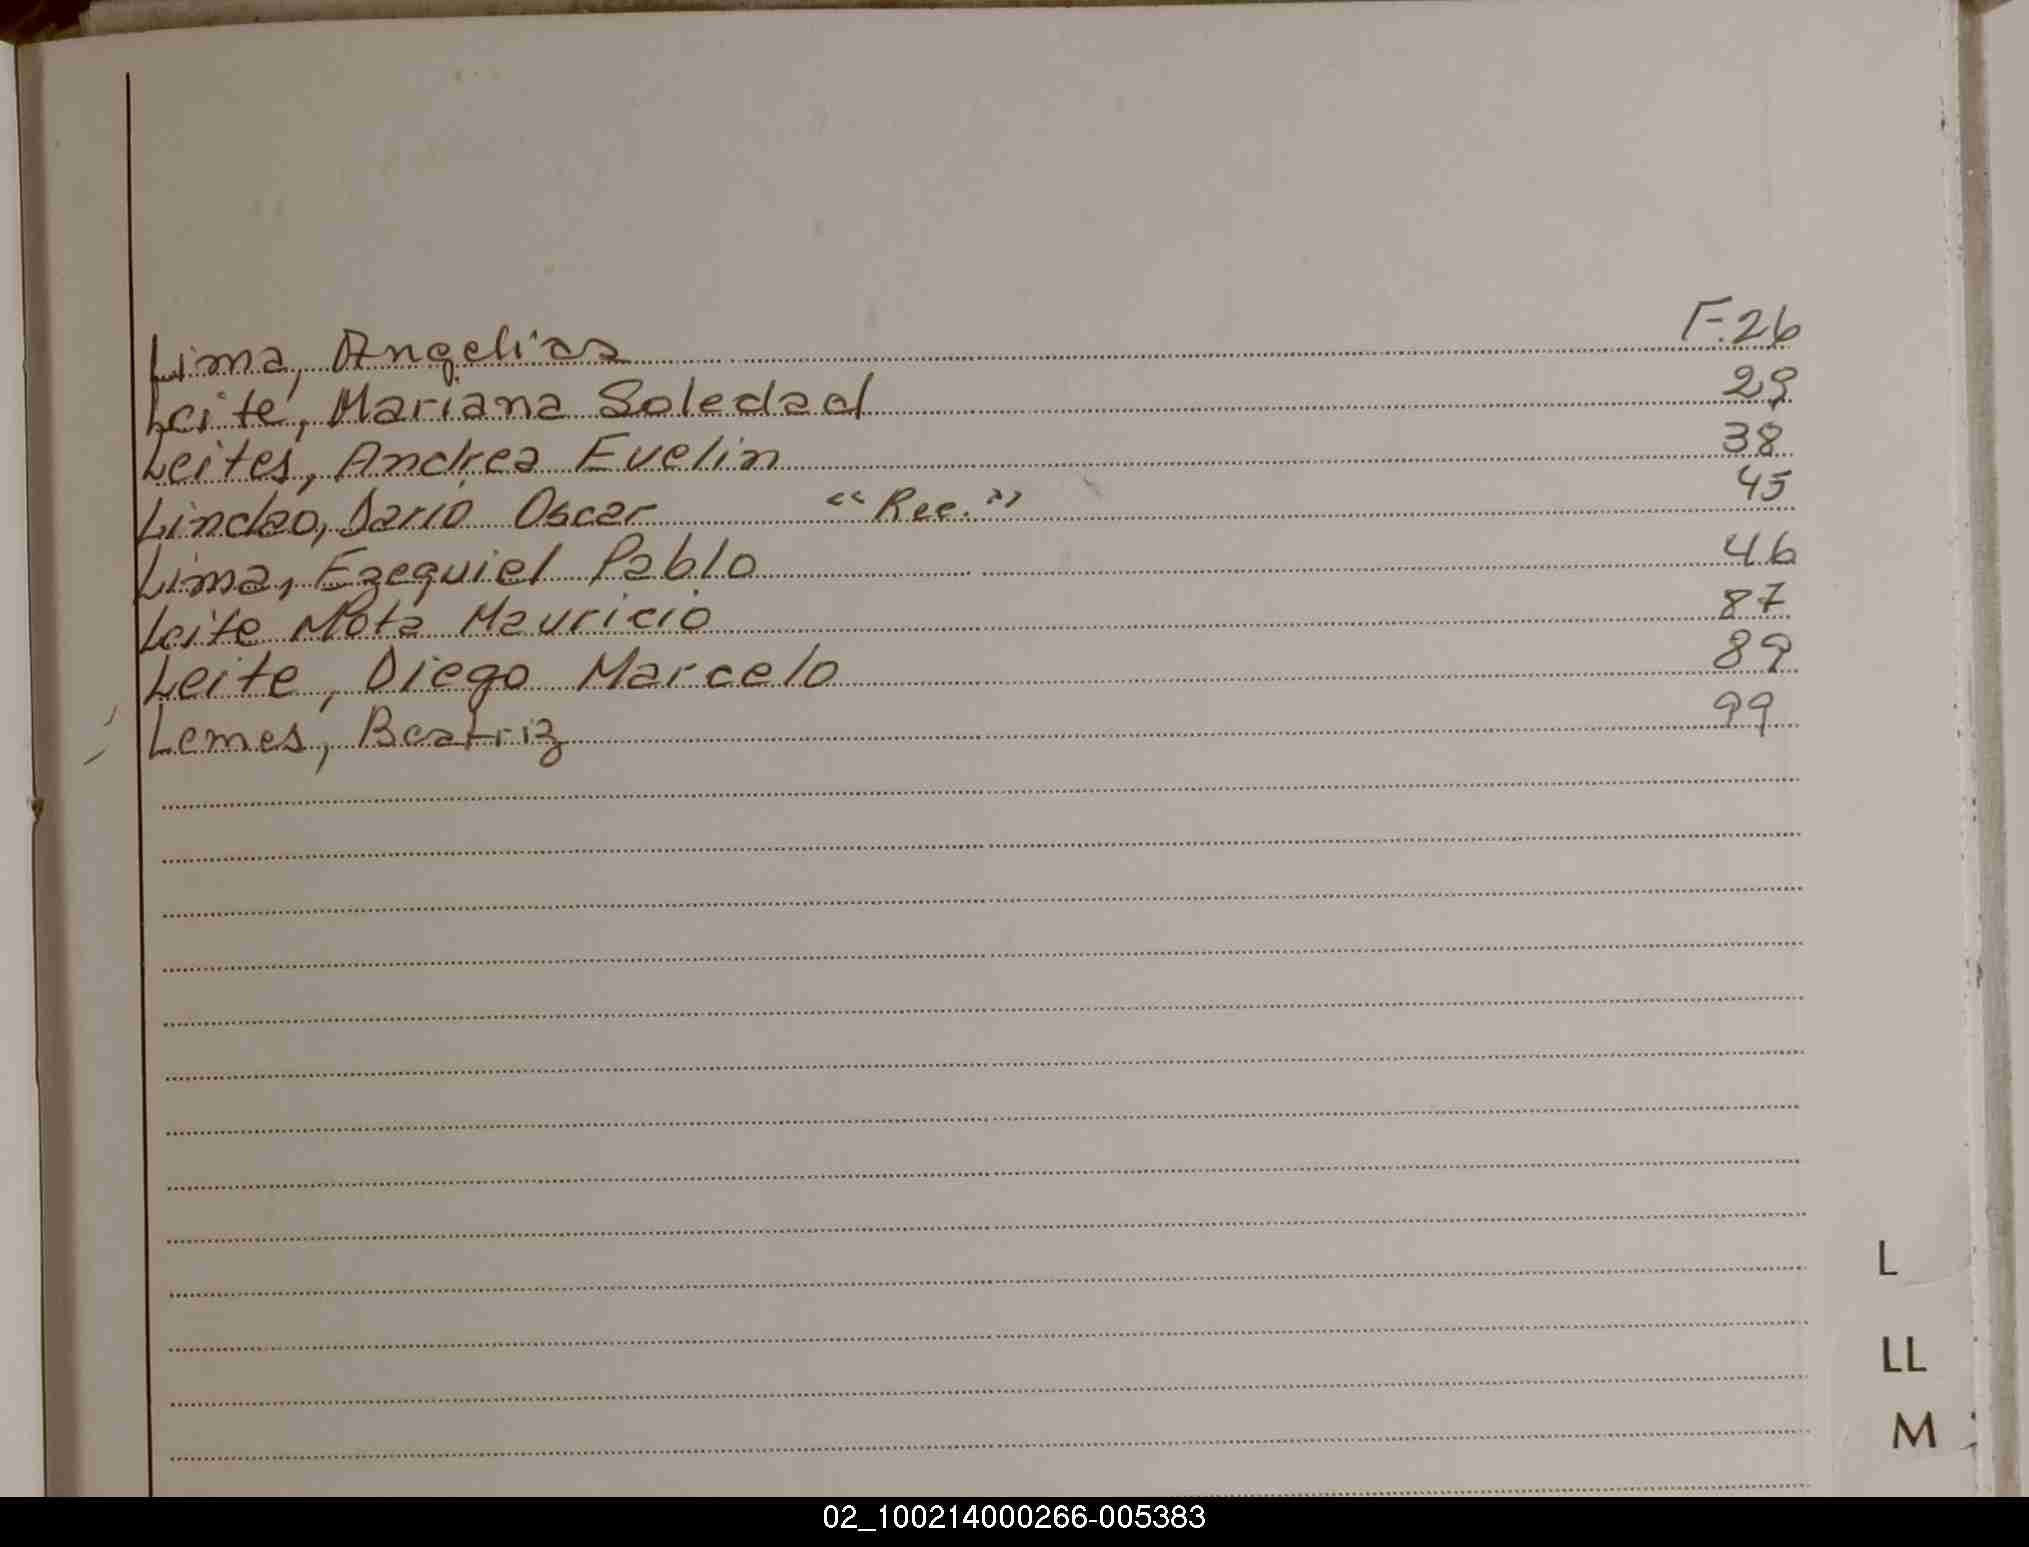 Lima, Angelias F.26
Leite, Mariana Soledad 29
Leites, Andrea Evelin 38
Lindao, Dario Oscar "Rec." 45
Lima, Ezequiel Pablo 46
Leite Mota Mauricio 87
Leite, Diego Marcelo 89
Lemes, Beatriz 99
L
LL
M
02_100214000266-005383